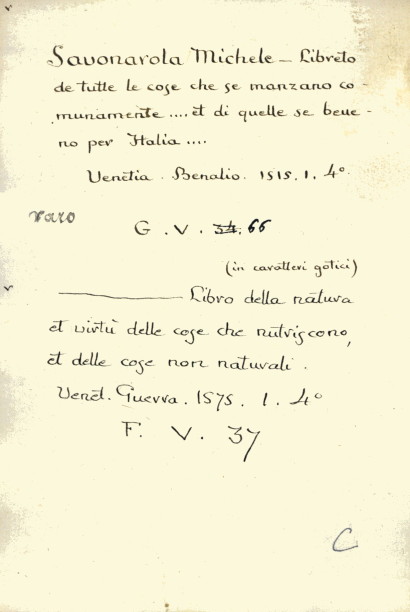 Savonarola Michele — Libreto
de tutte le cose che se manzano co-
munamente .... et di quelle se beve-
no per Italia ....
Venetia. Benalio. 1515. 1. 4º.
raro
G. V. 34. 66
(in caratteri gotici)
——— Libro della natura
et virtù delle cose che nutriscono,
et delle cose non naturali.
Venet. Guerra. 1575. 1. 4º
F. V. 37
C